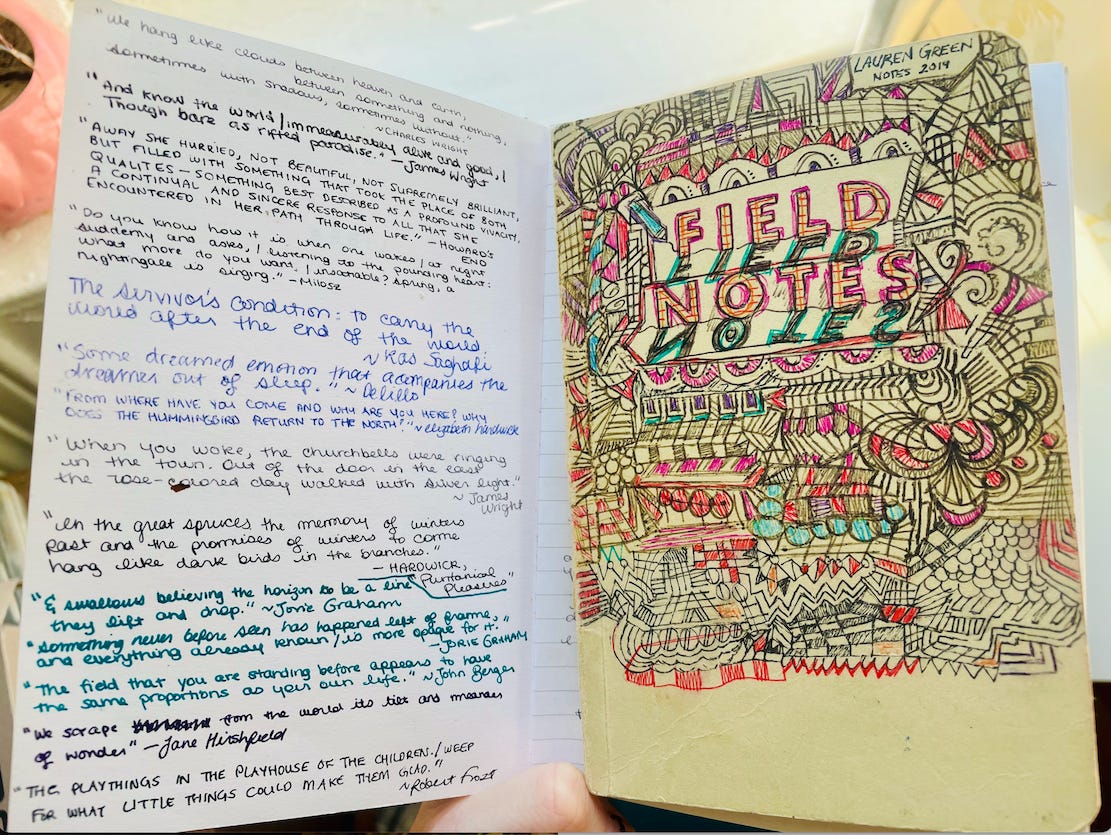 "We hang like clouds between heaven and earth,
between something and nothing,
sometimes with shadows, sometimes without."
~CHARLES WRIGHT
"And know the world / immeasurably alive and good, /
Though bare as rifted paradise." —James Wright
"AWAY SHE HURRIED, NOT BEAUTIFUL, NOT SUPREMELY BRILLIANT,
BUT FILLED WITH SOMETHING THAT TOOK THE PLACE OF BOTH
QUALITES — SOMETHING BEST DESCRIBED AS A PROFOUND VIVACITY,
A CONTINUAL AND SINCERE RESPONSE TO ALL THAT SHE
ENCOUNTERED IN HER PATH THROUGH LIFE." —HOWARD'S
END
"Do you know how it is when one wakes / at night
suddenly and asks, / listening to the pounding heart:
what more do you want, / insatiable? Spring, a
nightingale is singing." —Milosz
The Survivor's Condition: to carry the
world after the end of the world
~Kas Saghafi
"Some dreamed emotion that acompanies the
dreamer out of sleep." ~Delillo
"FROM WHERE HAVE YOU COME AND WHY ARE YOU HERE? WHY
DOES THE HUMMINGBIRD RETURN TO THE NORTH?" ~elizabeth hardwick
"When you woke, the churchbells were ringing
in the town. Out of the door in the east
the rose-colored day walked with silver light."
~James
Wright
"In the great spruces the memory of winters
past and the promises of winters to come
hang like dark birds in the branches."
—HARDWICK,
"Puritanical
Pleasures"
"& swallows believing the horizon to be a line
they lift and drop." ~Jorie Graham
"something never before seen has happened left of frame,
and everything already known / is more opaque for it."
—JORIE GRAHAM
"The field that you are standing before appears to have
the same proportions as your own life." ~John Berger
"We scrape from the world its tilt and meander
of wonder" —Jane Hirshfield
"THE PLAYTHINGS IN THE PLAYHOUSE OF THE CHILDREN. / WEEP
FOR WHAT LITTLE THINGS COULD MAKE THEM GLAD."
~Robert Frost
LAUREN GREEN
NOTES 2019
FIELD
NOTES